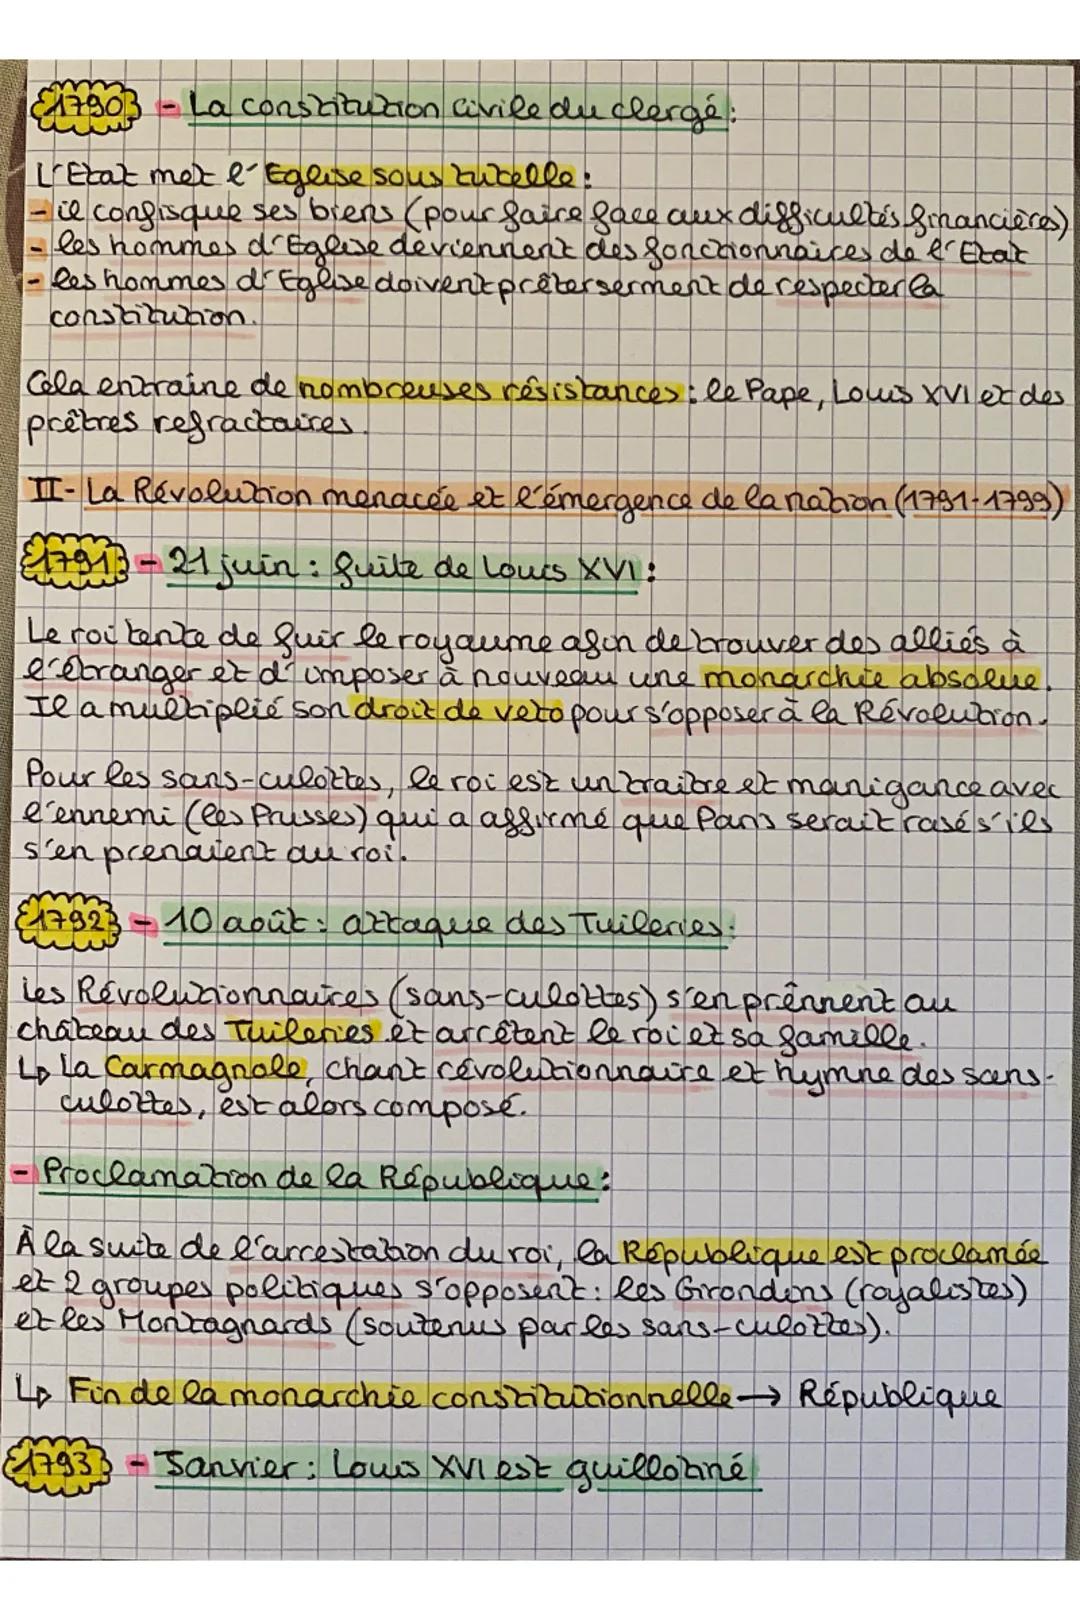 1790 - La constitution civile du clergé :
L'Etat met l'Eglise sous tutelle :
- il confisque ses biens (pour faire face aux difficultés financières)
- les hommes d'Eglise deviennent des fonctionnaires de l'Etat
- les hommes d'Eglise doivent prêter serment de respecter la
constitution.
Cela entraine de nombreuses résistances : le Pape, Louis XVI et des
prêtres refractaires.
II- La Révolution menacée et l'émergence de la nation (1791-1799)
1791 - 21 juin : fuite de Louis XVI :
Le roi tente de fuir le royaume afin de trouver des alliés à
l'étranger et d'imposer à nouveau une monarchie absolue.
Il a multiplié son droit de veto pour s'opposer à la Révolution.
Pour les sans-culottes, le roi est un traitre et manigance avec
l'ennemi (les Prusses) qui a affirmé que Paris serait rasé s'ils
s'en prenaient au roi.
1792 - 10 août : attaque des Tuileries.
Les Révolutionnaires (sans-culottes) s'en prènnent au
château des Tuileries et arrêtent le roi et sa famille.
↳ La Carmagnole, chant révolutionnaire et hymne des sans-
culottes, est alors composé.
- Proclamation de la République :
À la suite de l'arrestation du roi, la République est proclamée
et 2 groupes politiques s'opposent : les Girondins (royalistes)
et les Montagnards (soutenus par les sans-culottes).
↳ Fin de la monarchie constitutionnelle → République
1793 - Janvier : Louis XVI est guillotiné